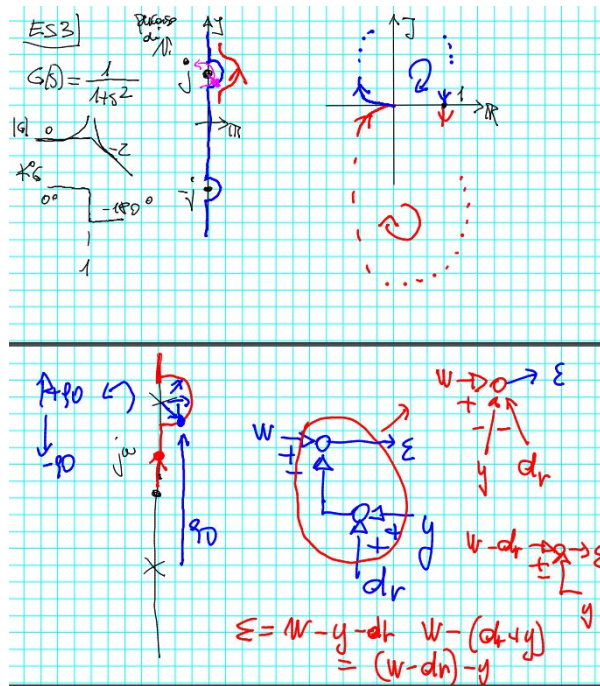 ES3
percorso
di
N.
G(s) = 1/(1+s²)
|G| 0 -2
∡G 0° -180°
1
j
-j
R
J
1
R
+90
-90
jω
90
W + - ε
+ + y
dr
W + ε
- -
y dr
W-dr + ε
-
y
ε = W - y - dr W - (dr + y)
= (W - dr) - y